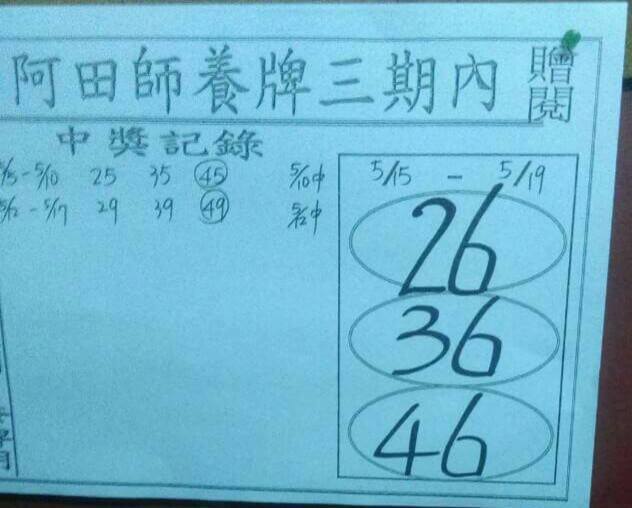 阿田師養牌三期內
贈閱
中獎記錄
5/5-5/10 25 35 45 5/10中
5/12-5/17 29 39 49 5/12中
5/15 - 5/19
26
36
46